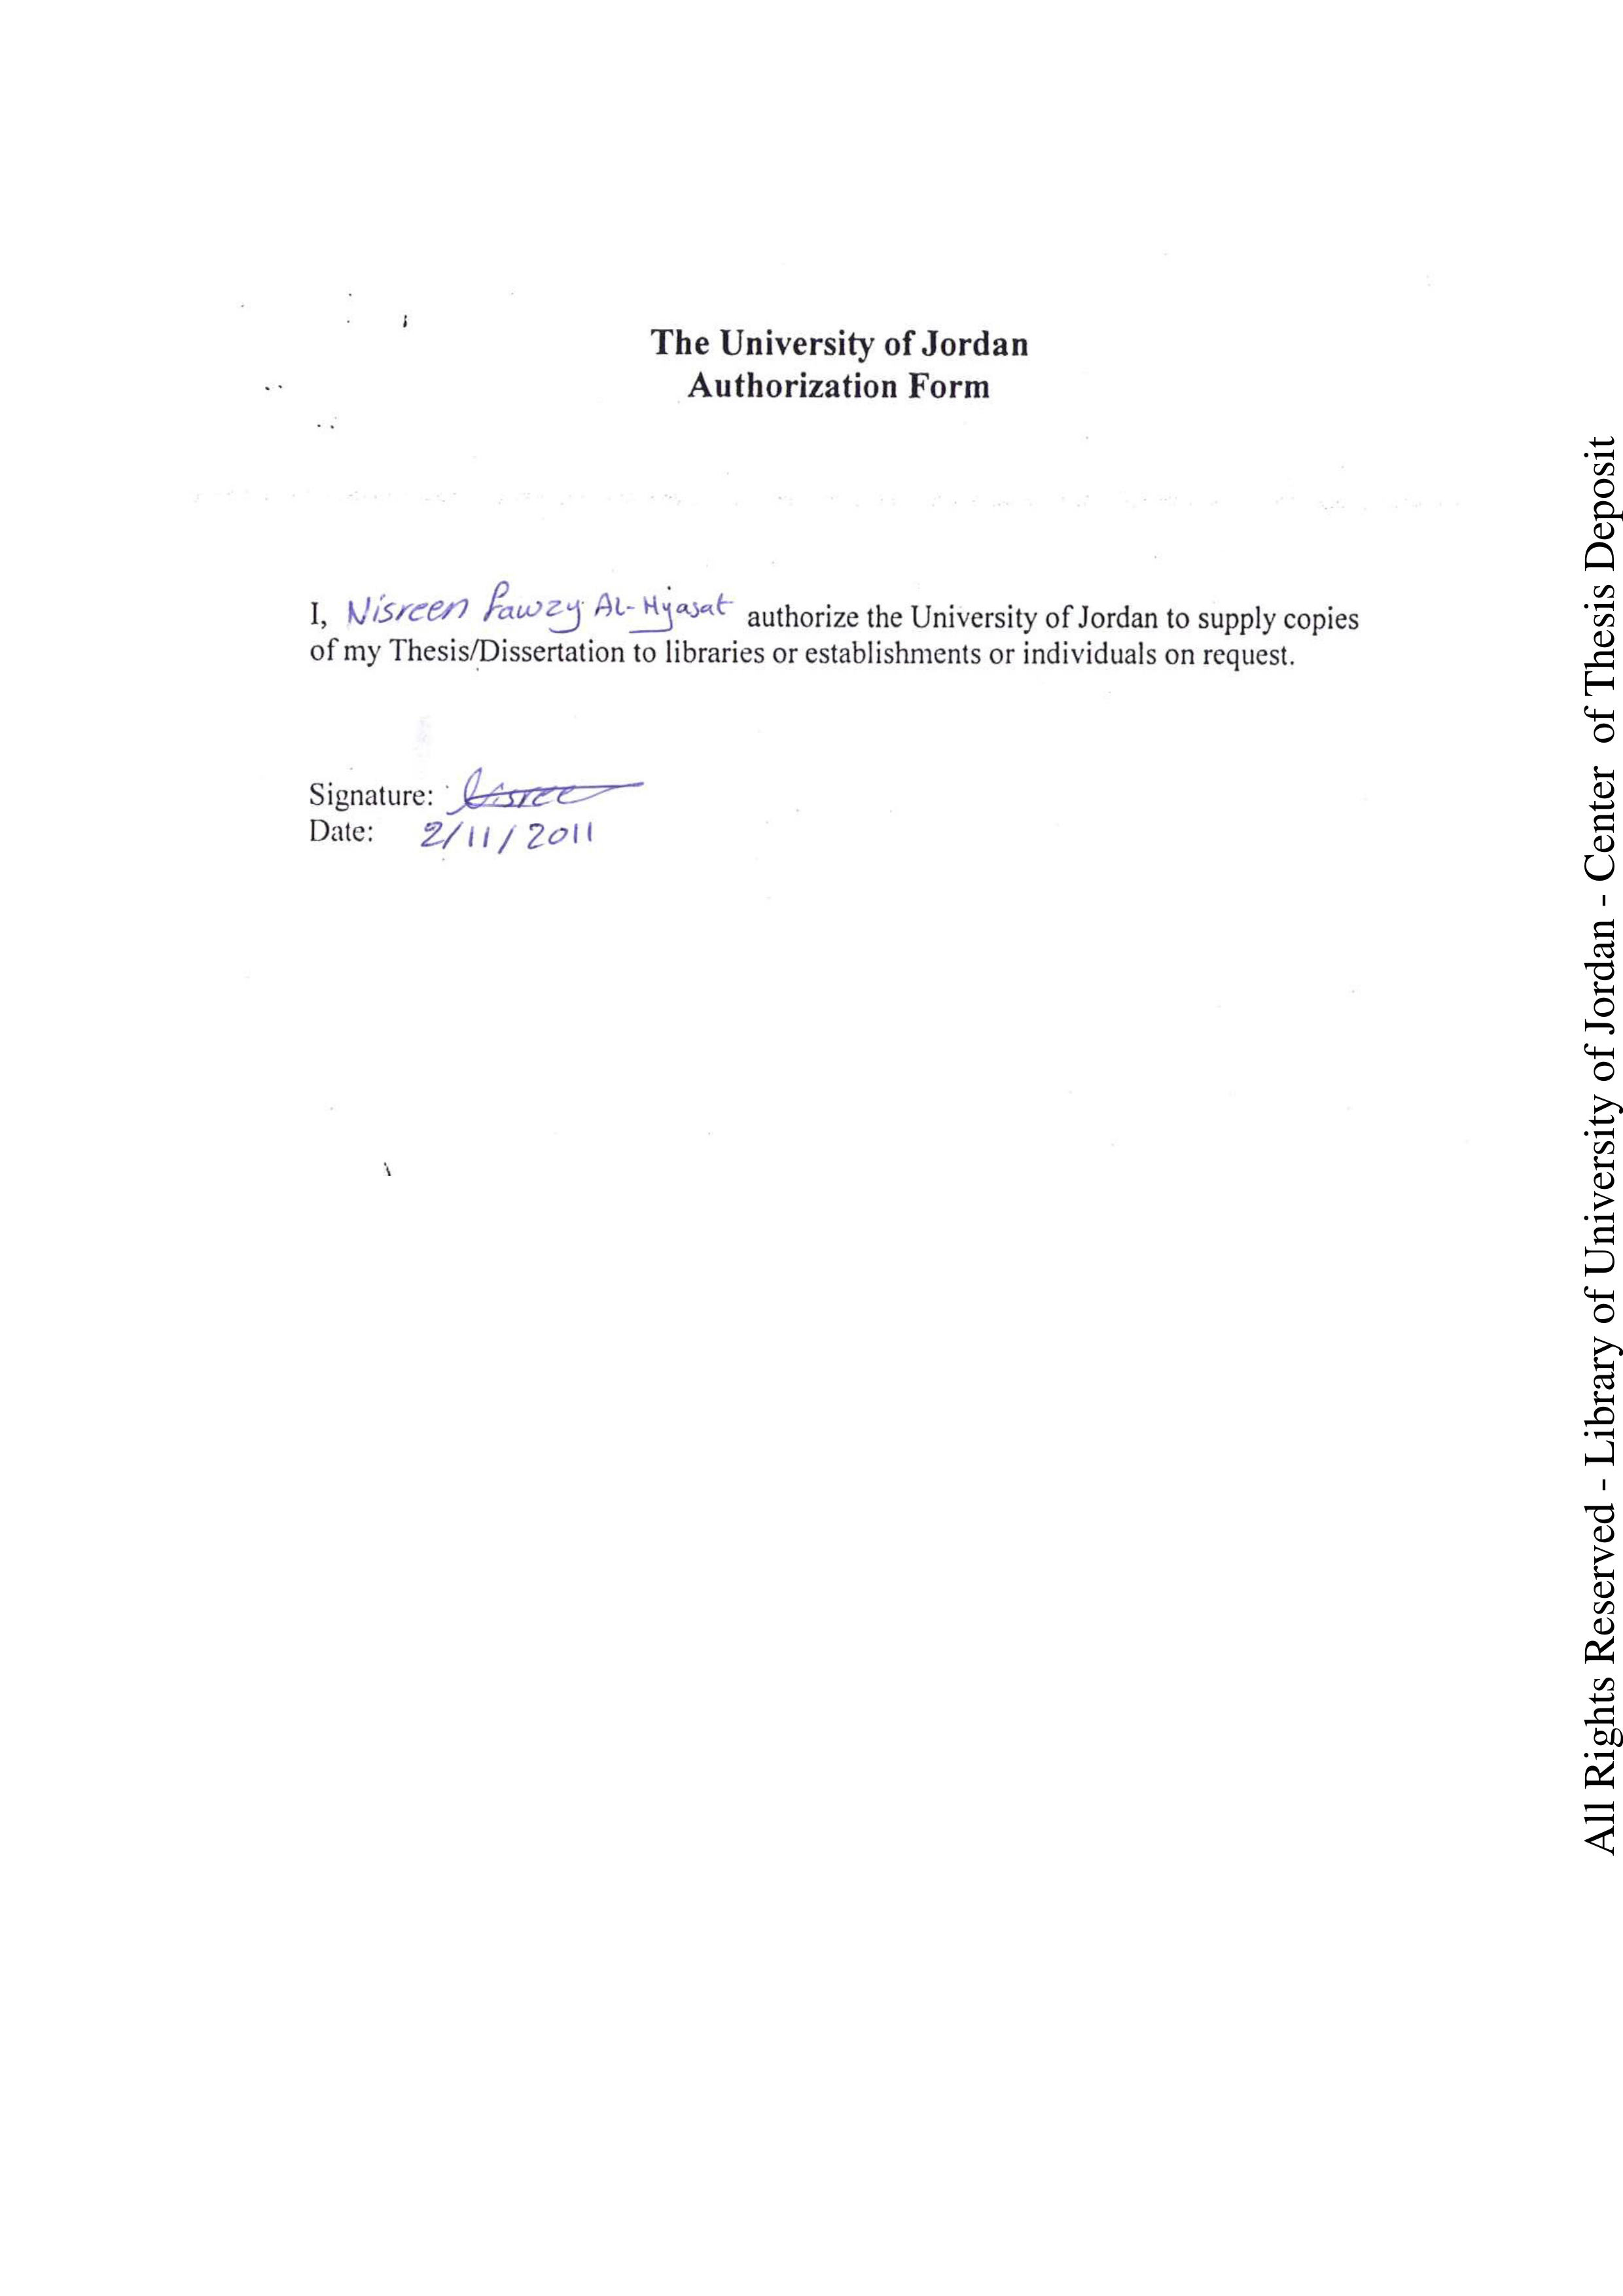 The University of Jordan
Authorization Form
I, Nisreen Fawzy AL-Hyasat authorize the University of Jordan to supply copies
of my Thesis/Dissertation to libraries or establishments or individuals on request.
Signature: Nisree
Date: 2/11/2011
All Rights Reserved - Library of University of Jordan - Center of Thesis Deposit